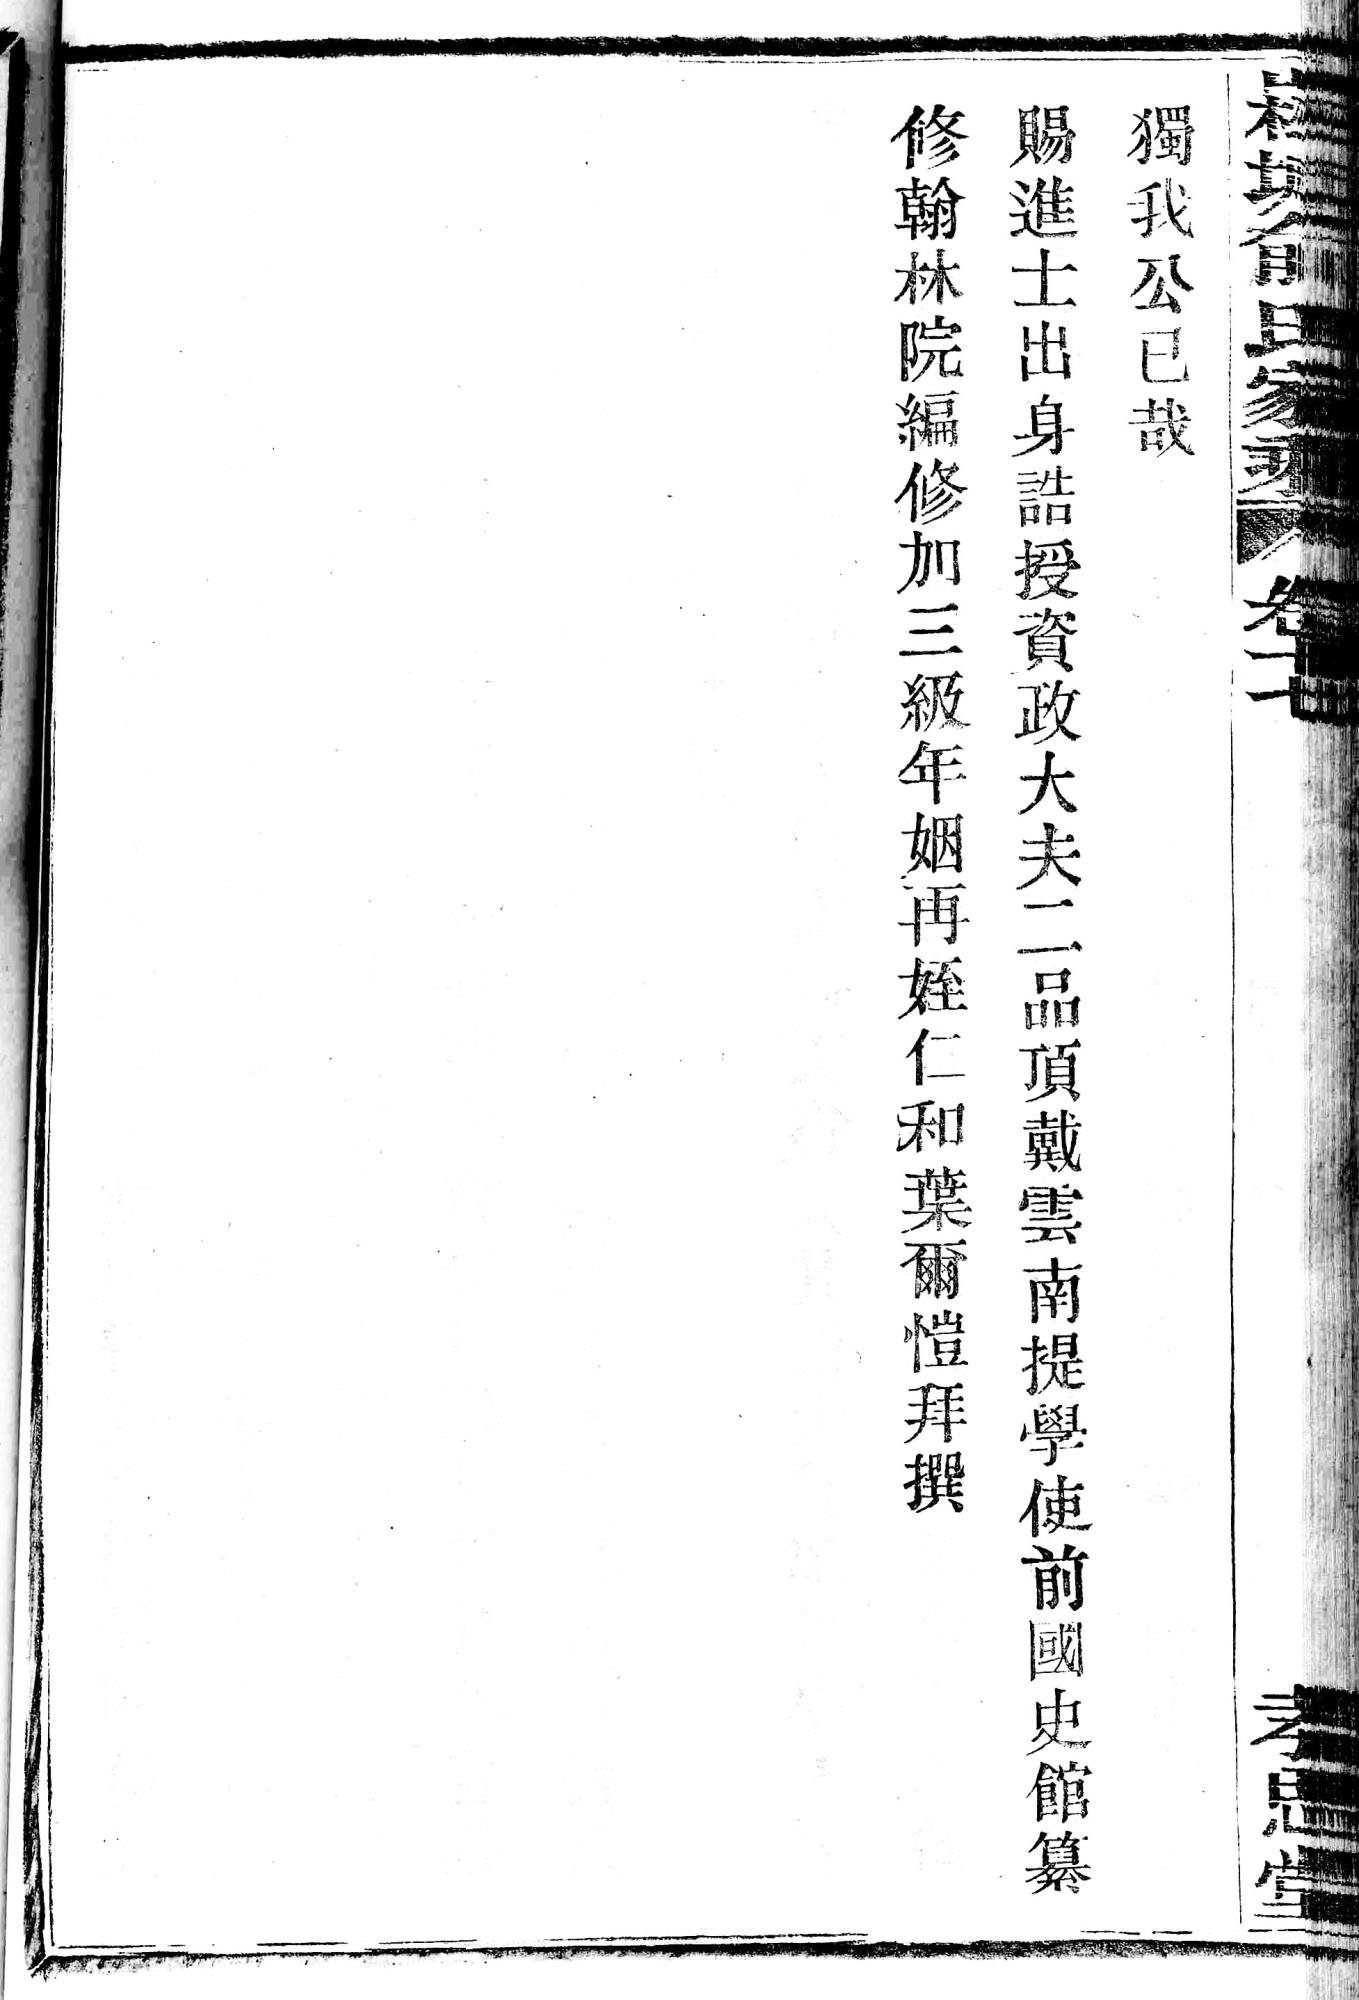 獨我公已哉
賜進士出身誥授資政大夫二品頂戴雲南提學使前國史館纂
修翰林院編修加三級年姻再姪仁和葉爾愷拜撰
俞氏家乘
卷十七
孝思堂